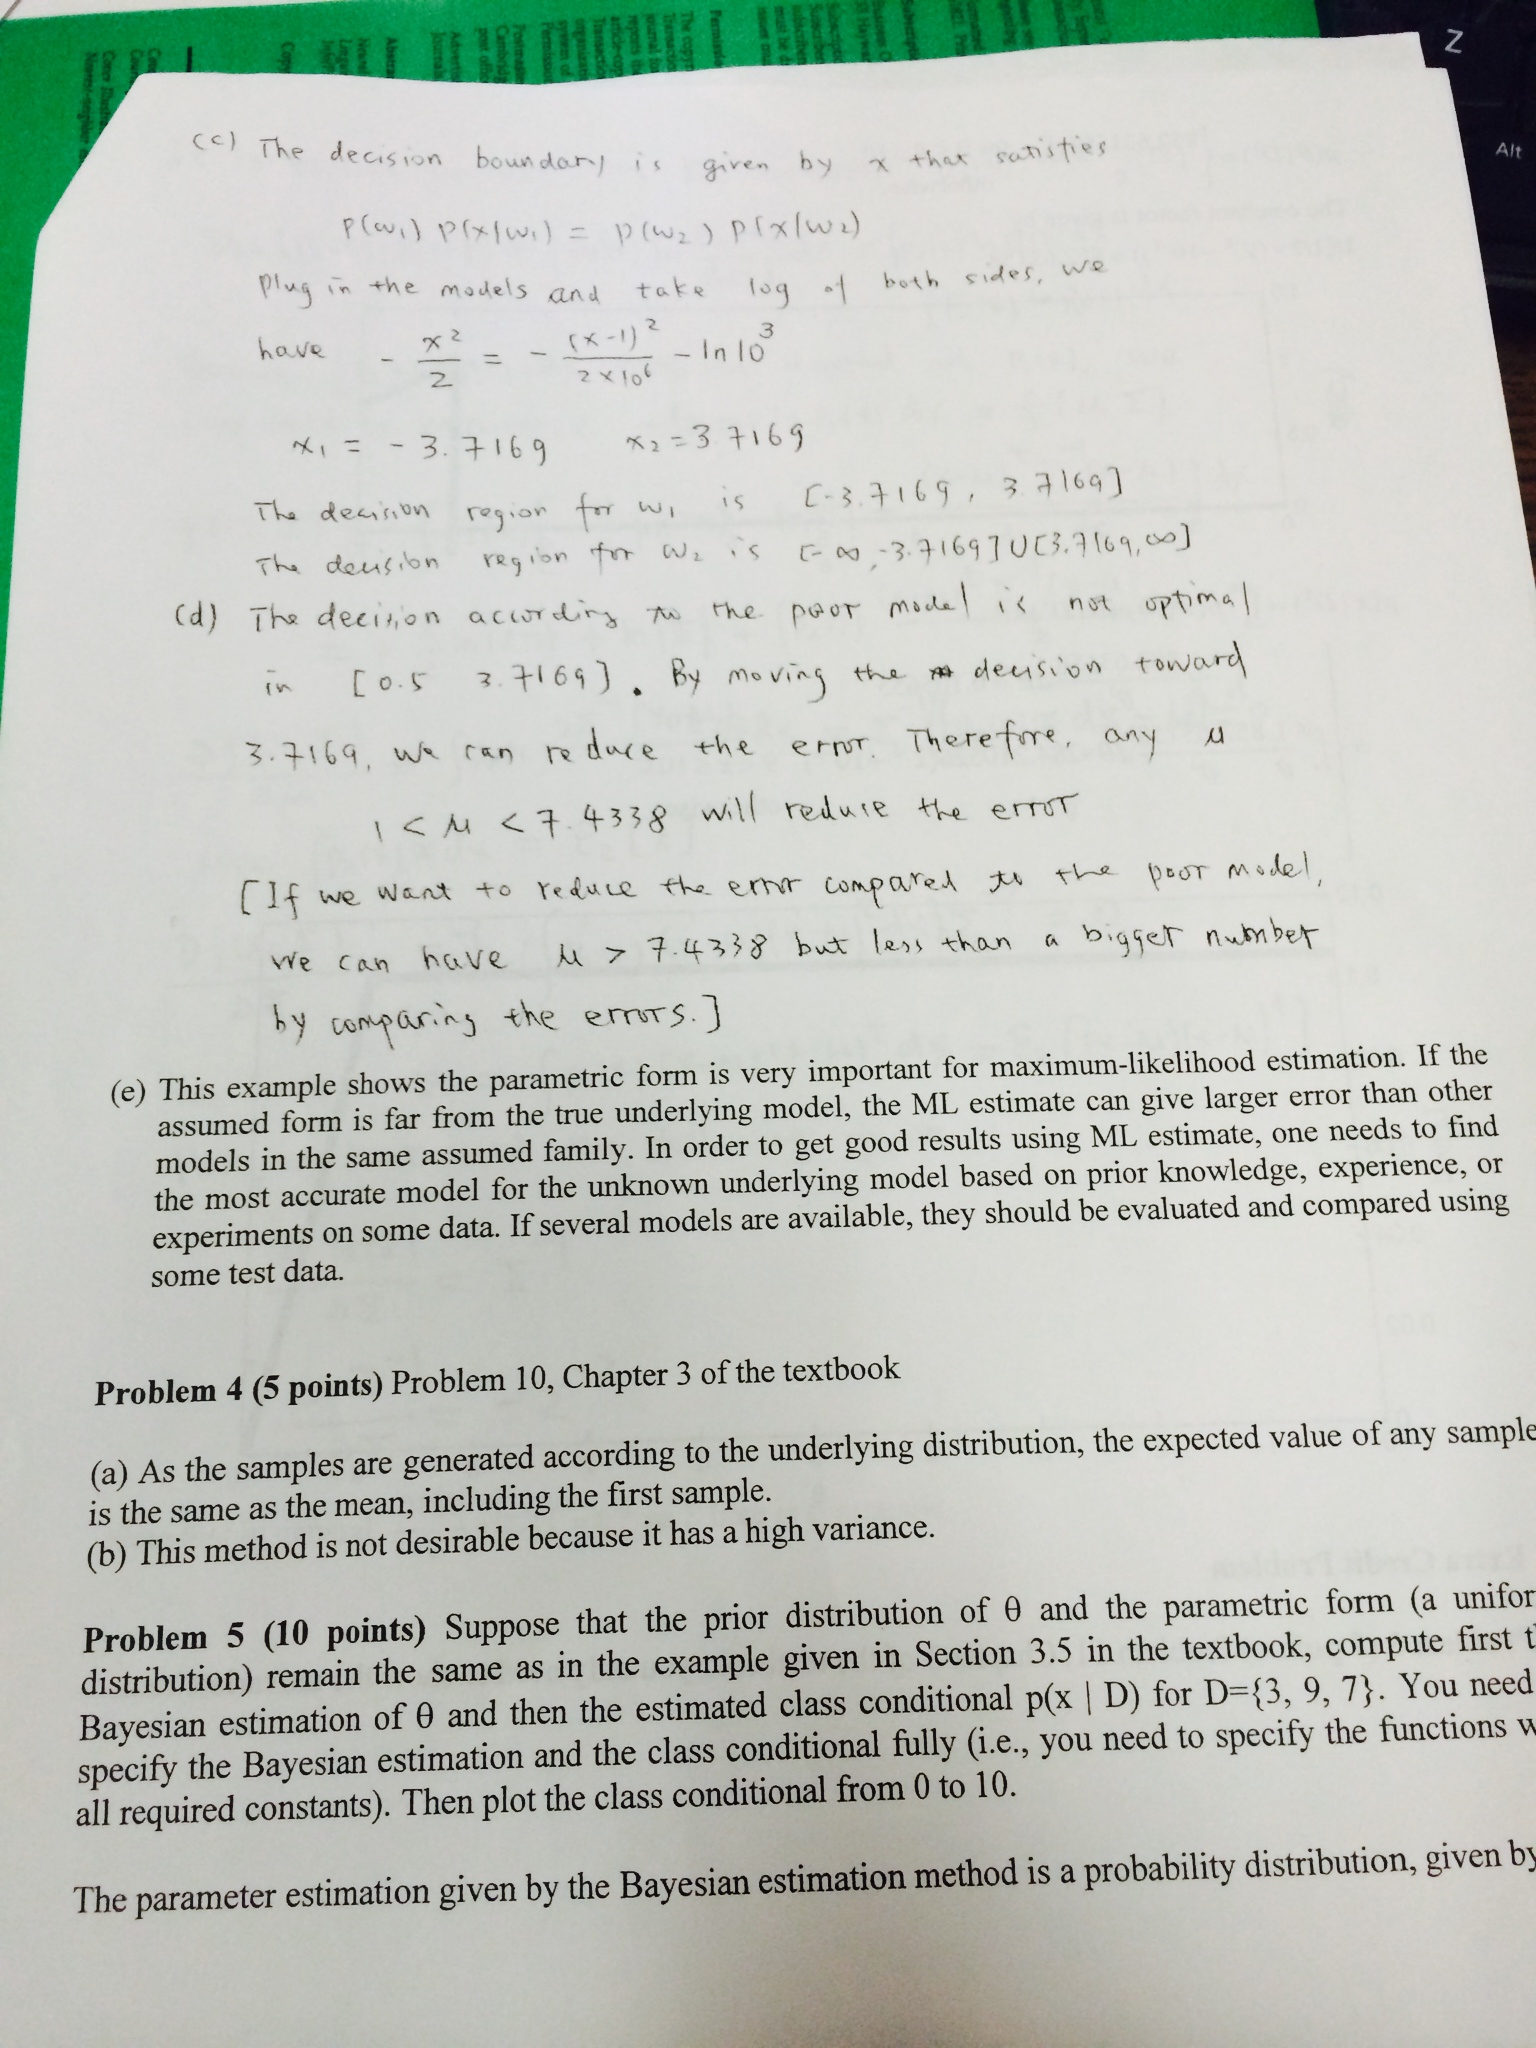 Z
Alt
(c) The decision boundary is given by x that satisfies
P(ω₁) P(x|ω₁) = P(ω₂) P(x|ω₂)
Plug in the models and take log of both sides, we
have - x²/2 = - (x-1)²/(2×10⁶) - ln 10³
x₁ = - 3.7169 x₂ = 3.7169
The decision region for ω₁ is [-3.7169, 3.7169]
The decision region for ω₂ is [-∞, -3.7169] ∪ [3.7169, ∞]
(d) The decision according to the poor model is not optimal
in [0.5 3.7169]. By moving the decision toward
3.7169, we can reduce the error. Therefore, any μ
1 < μ < 7.4338 will reduce the error
[If we want to reduce the error compared to the poor model,
we can have μ > 7.4338 but less than a bigger number
by comparing the errors.]
(e) This example shows the parametric form is very important for maximum-likelihood estimation. If the
assumed form is far from the true underlying model, the ML estimate can give larger error than other
models in the same assumed family. In order to get good results using ML estimate, one needs to find
the most accurate model for the unknown underlying model based on prior knowledge, experience, or
experiments on some data. If several models are available, they should be evaluated and compared using
some test data.
Problem 4 (5 points) Problem 10, Chapter 3 of the textbook
(a) As the samples are generated according to the underlying distribution, the expected value of any sample
is the same as the mean, including the first sample.
(b) This method is not desirable because it has a high variance.
Problem 5 (10 points) Suppose that the prior distribution of θ and the parametric form (a unifor
distribution) remain the same as in the example given in Section 3.5 in the textbook, compute first t
Bayesian estimation of θ and then the estimated class conditional p(x | D) for D={3, 9, 7}. You need
specify the Bayesian estimation and the class conditional fully (i.e., you need to specify the functions w
all required constants). Then plot the class conditional from 0 to 10.
The parameter estimation given by the Bayesian estimation method is a probability distribution, given by